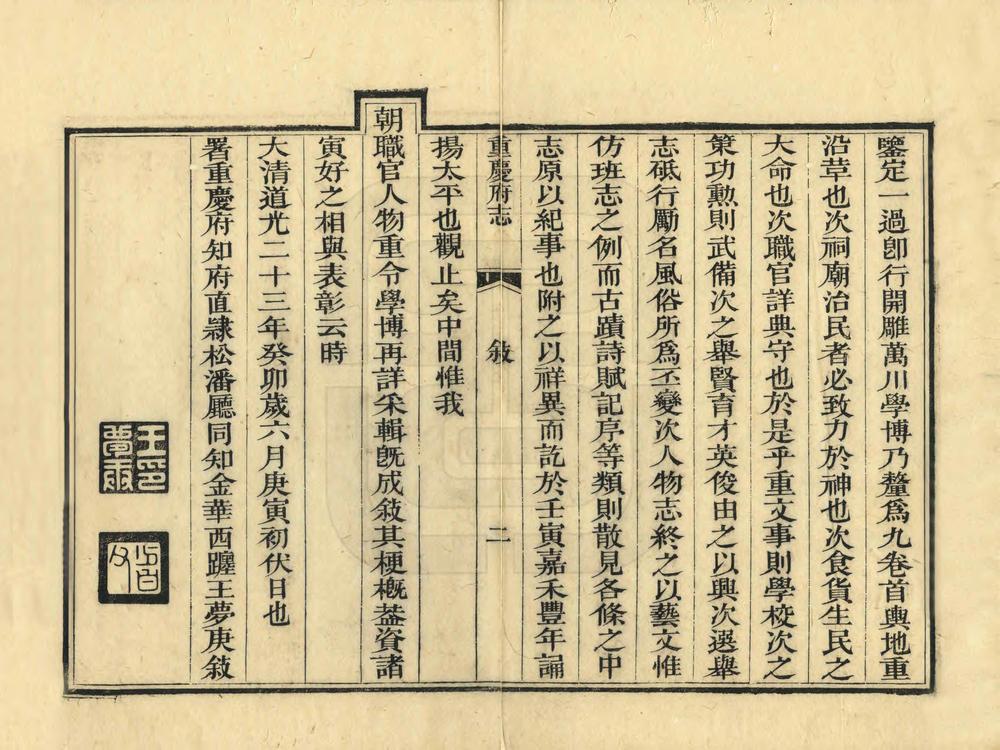 鑒定一過卽行開雕萬川學博乃釐爲九卷首輿地重
沿革也次祠廟治民者必致力於神也次食貨生民之
大命也次職官詳典守也於是乎重文事則學校次之
策功勲則武備次之舉賢育才英俊由之以興次選舉
志砥行勵名風俗所爲丕變次人物志終之以藝文惟
仿班志之例而古蹟詩賦記序等類則散見各條之中
志原以紀事也附之以祥異而訖於壬寅嘉禾豐年誦
重慶府志 敘 二
揚太平也觀止矣中間惟我
朝職官人物重令學博再詳采輯旣成敘其梗槪葢資諸
寅好之相與表彰云時
大清道光二十三年癸卯歲六月庚寅初伏日也
署重慶府知府直隸松潘廳同知金華西躔王夢庚敘